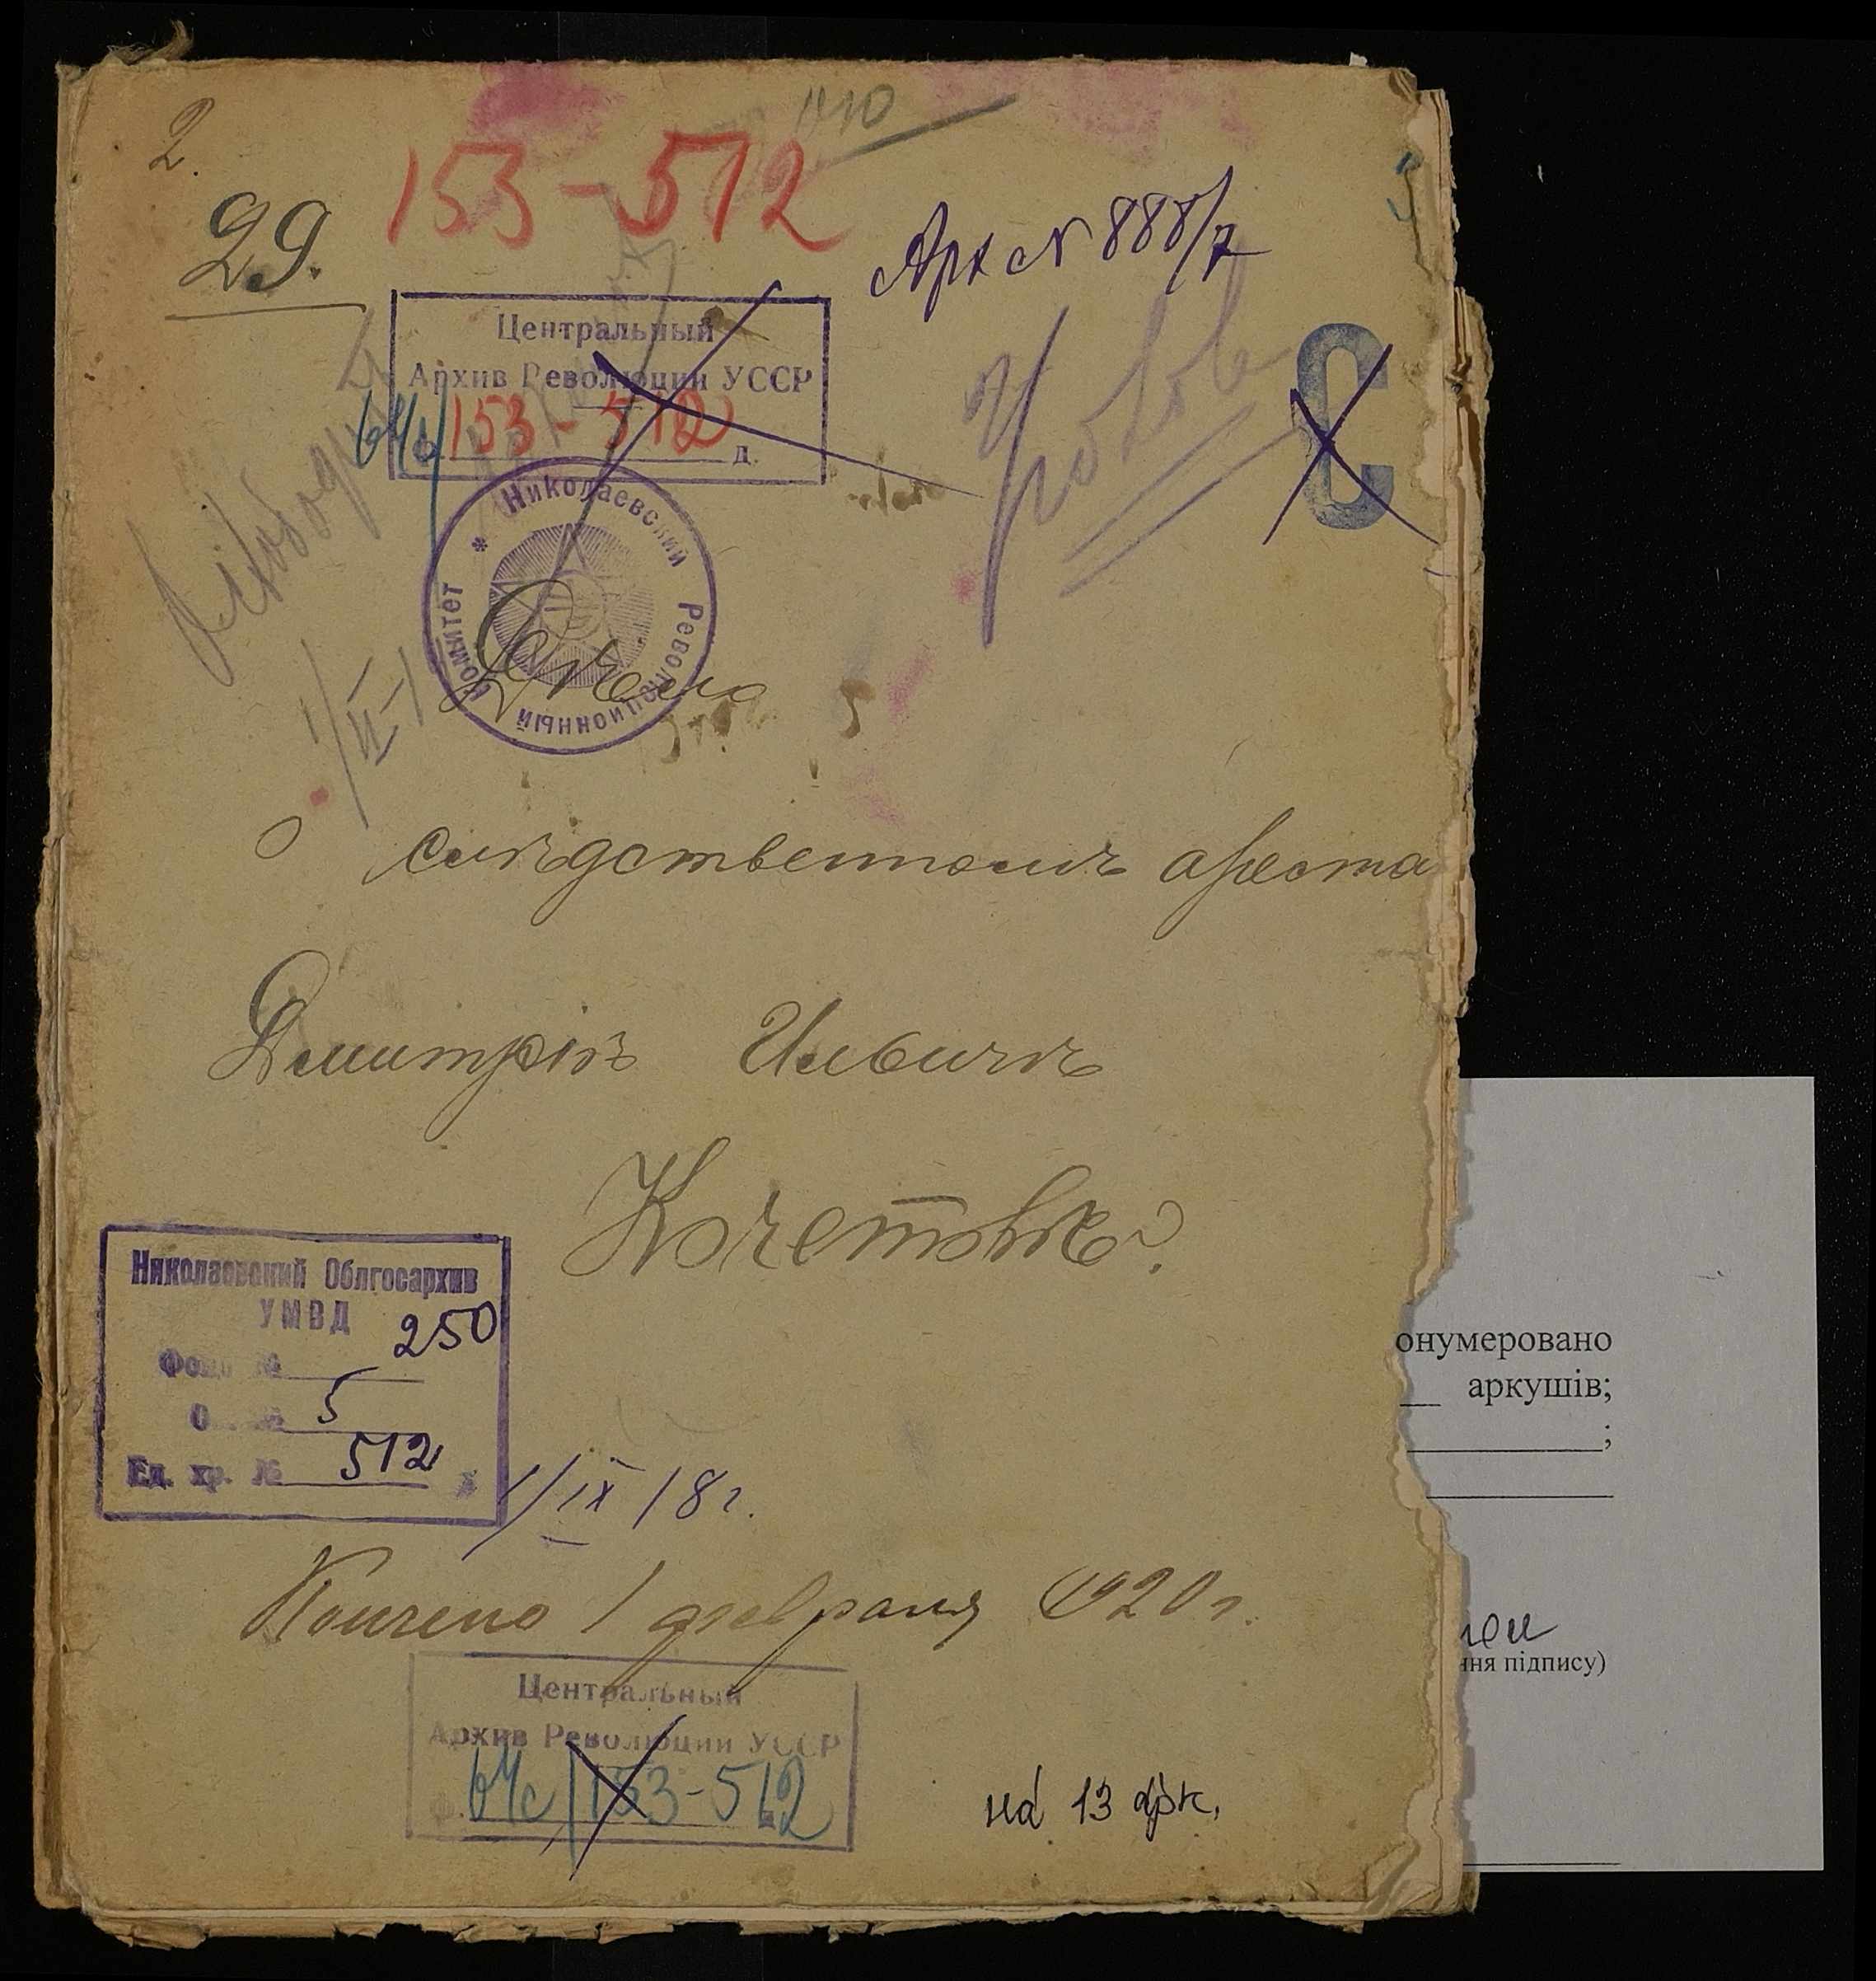 2.
29.
153-512
Арх № 888/7
Центральный
Архив Революции УССР
64с/153-512 д.
С
Николаевский Революционный Комитет
Дѣло
о слѣдственномъареста
Дмитріѣ Ильичѣ
Кочетовѣ.
Николаевский Облгосархив
УМВД
Фонд № 250
О № 5
Ед. хр. № 512
1/IX 18 г.
Кончено 1 февраля 1920 г.
Центральный
Архив Революции УССР
64с/153-512
на 13 арк.
онумеровано
аркушів;
;
ння підпису)